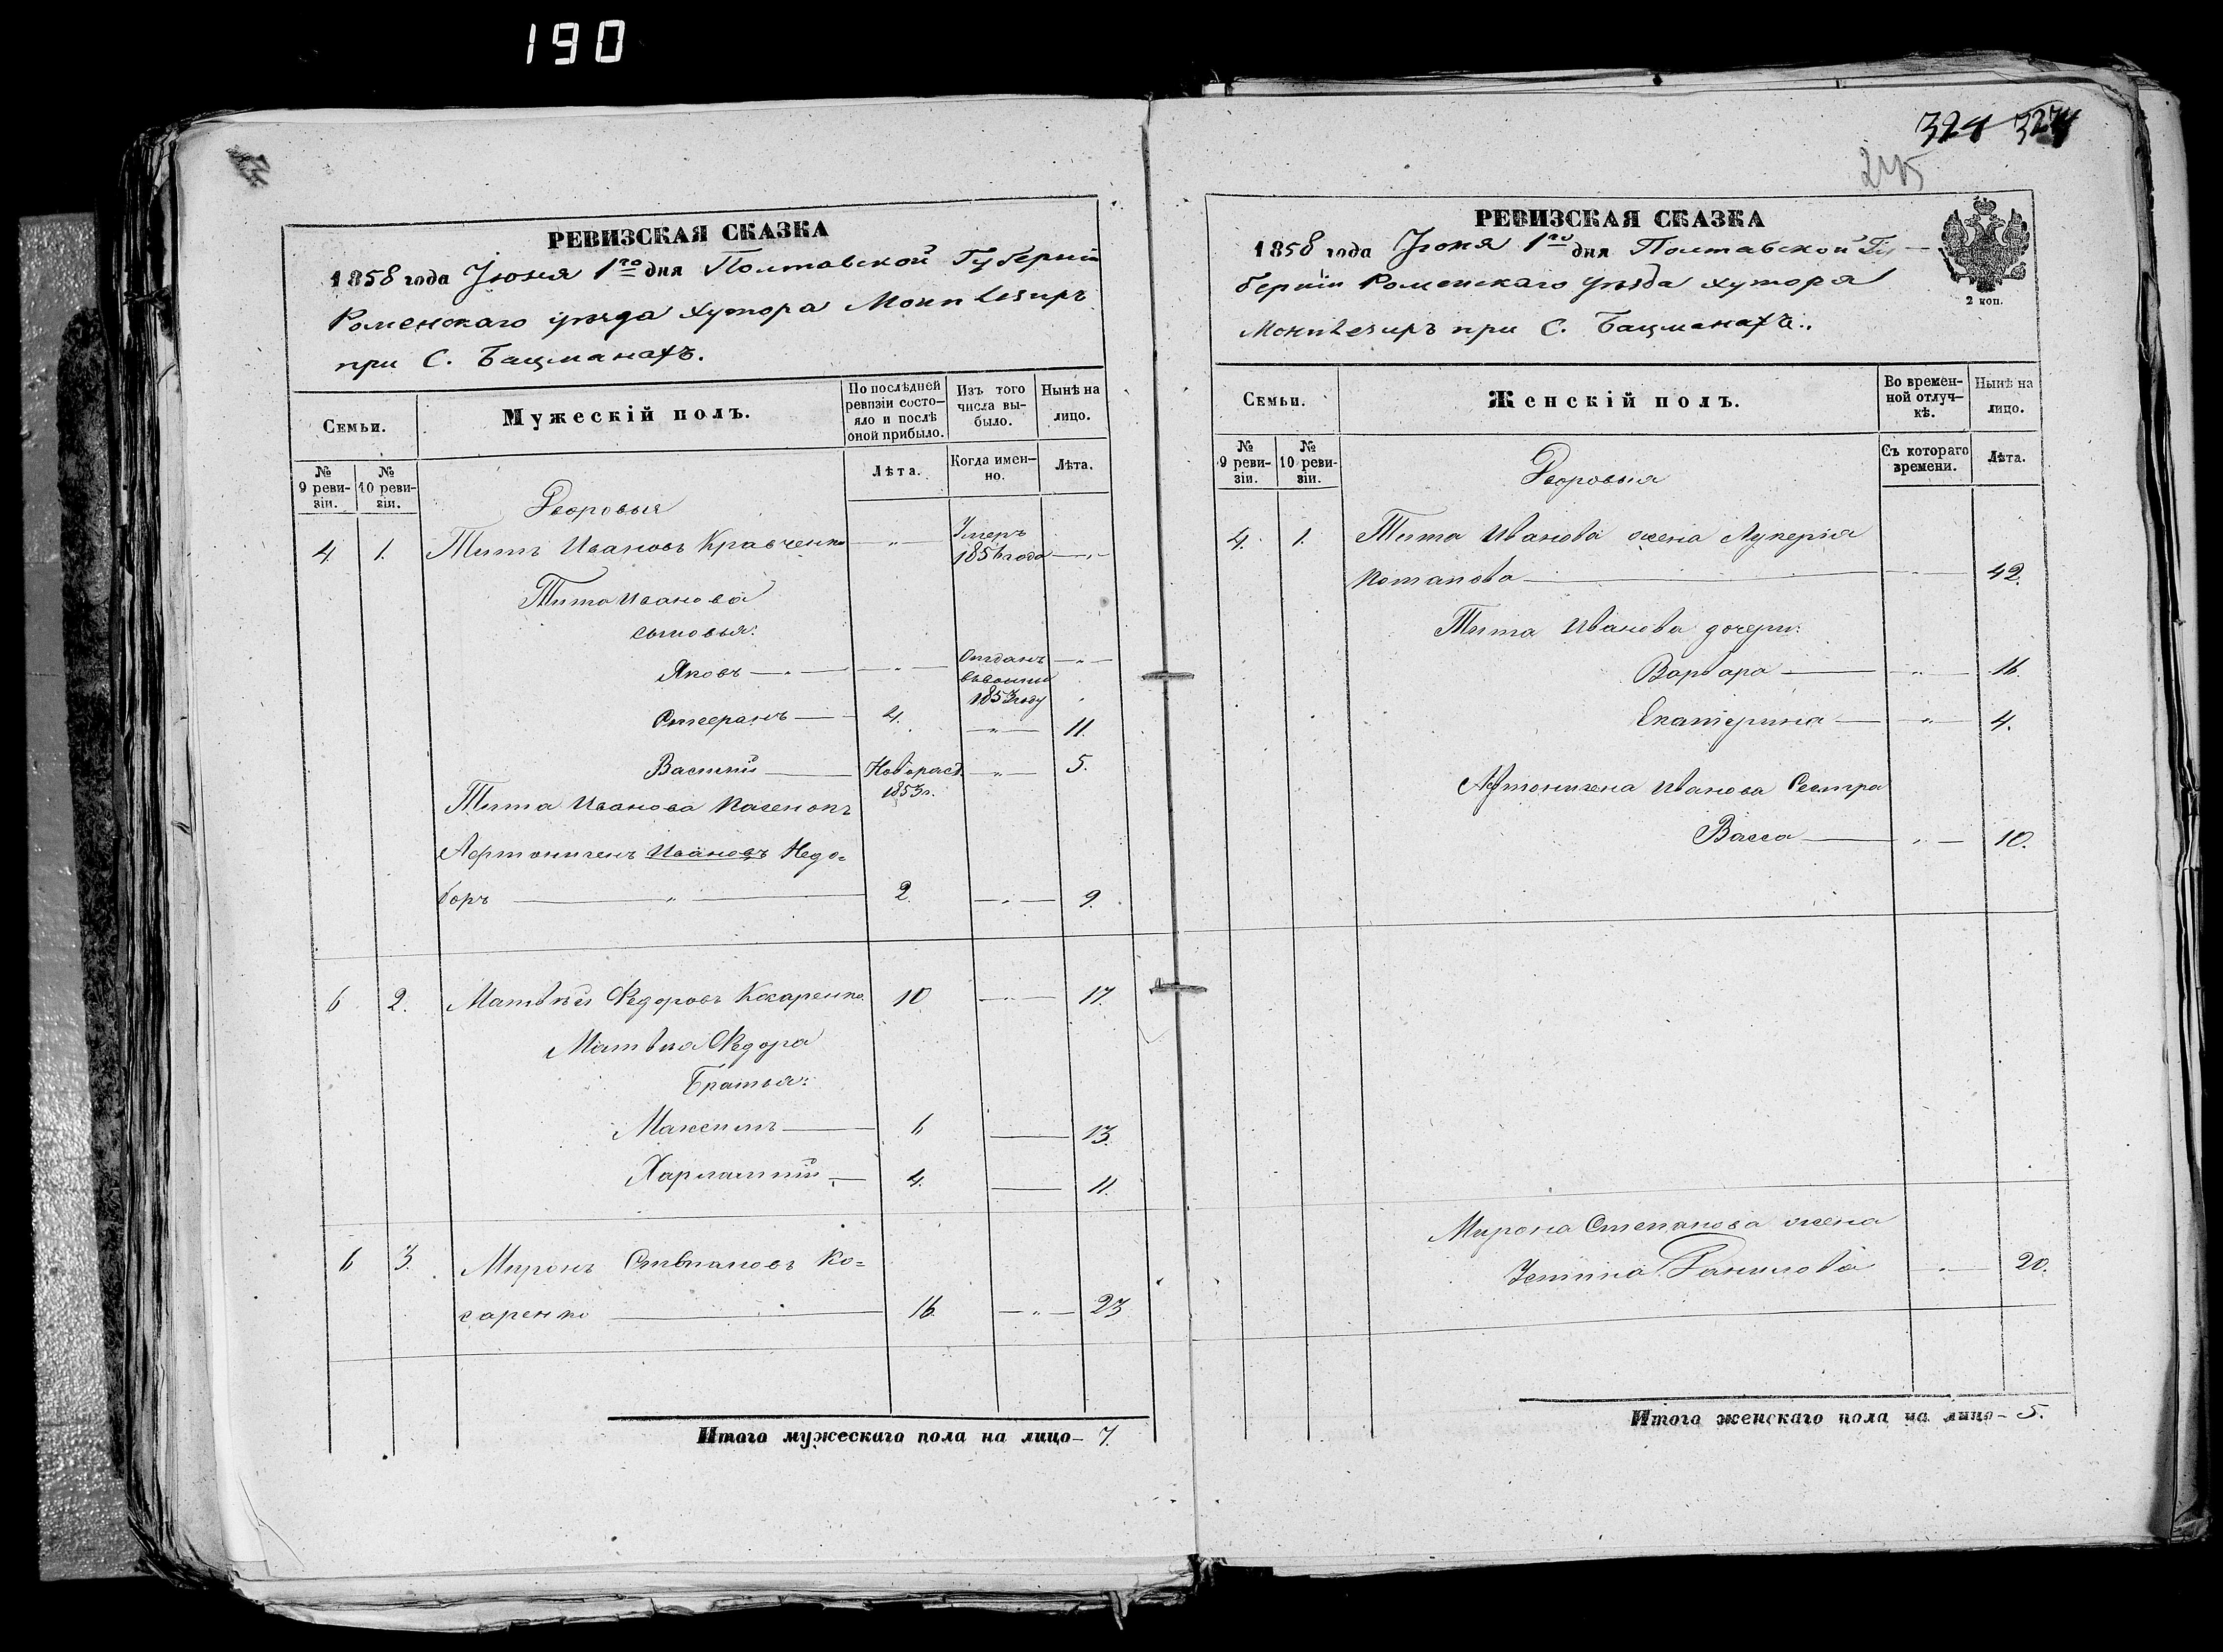 190
324 327
245
РЕВИЗСКАЯ СКАЗКА
1858 года Іюня 1го дня Полтавской Губерніи
Роменскаго уѣзда хутора
при С. Бацманахъ.
Семьи.
Мужескій полъ.
По послѣдней ревизіи состо-
яло и послѣ оной прибыло.
Изъ того числа вы-
было.
Нынѣ на лицо.
№ 9 реви-
зіи.
№ 10 реви-
зіи.
Лѣта.
Когда имен-
но.
Лѣта.
Дворовыя
4. 1. Титъ Ивановъ Кравченко — " — Умеръ 1856 года — " —
Тита Иванова
сыновья:
Яковъ — " — — " — Отданъ 1853 году — " —
Стефанъ — 4. — " — 11.
Василій — Новорожд. 1853 г. — " — 5.
Тита Иванова пасенокъ
Ивановъ Недо=
боръ — " — 2. — " — 9.
6 2. Матвѣй Федоровъ Косаренко. 10 — " — 17.
Матвѣя Федора
Братья:
Максимъ — 6 — 13.
Харлампій — 4. — 11.
6 3. Миронъ Стѣпановъ Ко=
саренко — 16. — " — 23
Итого мужескаго пола на лицо — 7.
РЕВИЗСКАЯ СКАЗКА
1858 года Іюня 1го дня Полтавской Гу-
берніи Роменскаго уѣзда хутора
при С. Бацманахъ.
2 коп.
Семьи.
Женскій полъ.
Во времен-
ной отлуч-
кѣ.
Нынѣ на лицо.
№ 9 реви-
зіи.
№ 10 реви-
зіи.
Съ котораго времени.
Лѣта.
Дворовыя
4. 1. Тита Иванова жена Лукерія
Потапова — 42.
Тита Иванова дочери:
Варвара — " — 16.
Екатерина — " — 4.
Иванова Сестра
Васса — " — 10.
Мирона Степанова жена
Устина Данилова — " — 20.
Итого женскаго пола на лицо — 5.